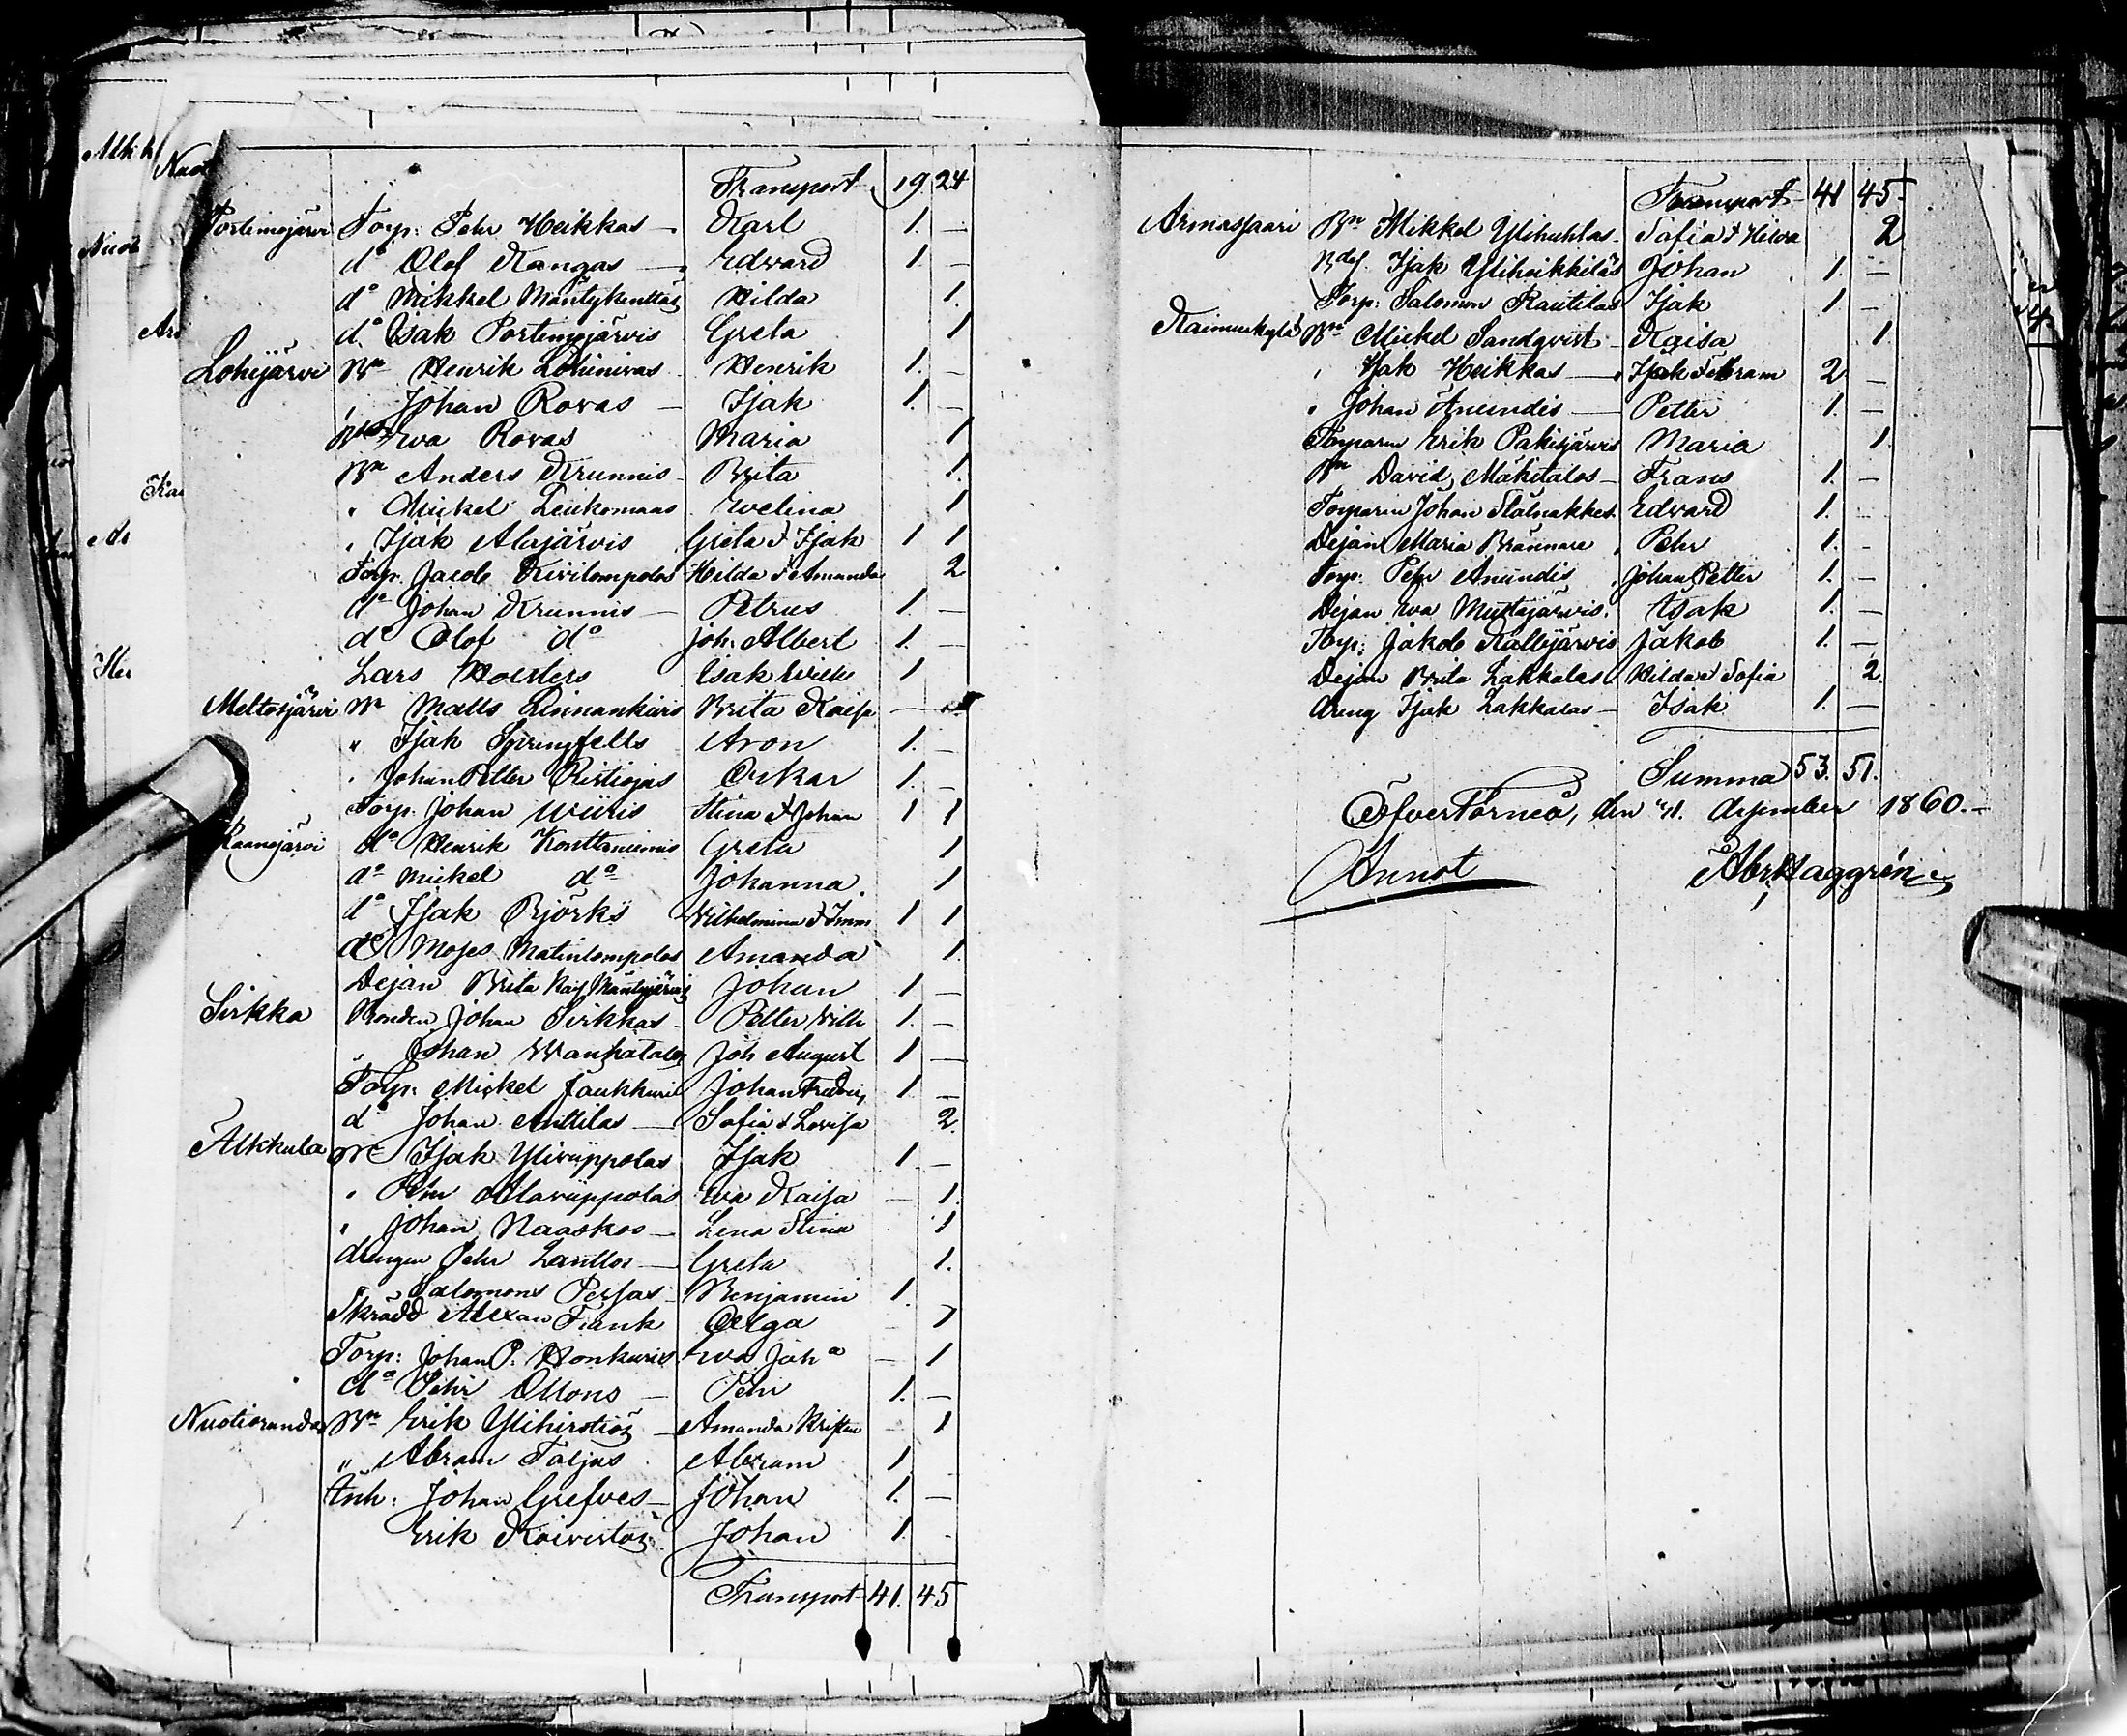 Transport 19 24
Portimojärvi Torp: Pehr Heikkas — Karl 1. —
do Olof Kangas — Edvard 1. —
do Mikkel Mäntykenttäs Hilda 1.
do Isak Portimojärvis Greta 1
Lohijärvi Bn Henrik Lohinivas Henrik 1. —
, Johan Rovas — Isak 1. —
Ewa Rovas Maria 1
Bn Anders Krunnis Brita 1.
" Mickel Leukomaas Evelina 1
" Isak Alajärvis Greta & Isak 1 1
Torp. Jacob Kivilompolos Hilda & Amanda 2
do Johan Krunnis — Petrus 1. —
do Olof do Joh. Albert 1. —
Lars Hoikters Isak Wilh 1
Meltosjärvi Bn Matts Linnankivis Brita Kaisa — 1
" Isak Springfelts Aron 1. —
" Johan Petter Ristiojas Oskar 1. —
Torp. Johan Wiiris Stina & Johan 1 1
Raanojärvi do Henrik Konttaniemis Greta 1
do Mickel do Johanna 1
do Isak Björks Wilhelmina & Imm 1 1
do Moses Matinlompolos Amanda 1
Dejan Brita Kajs Mäntyjärvis Johan 1 —
Sirkka Bonden Johan Sirkkas — Petter Wilh 1. —
" Johan Wanhatalos Joh August 1 —
Torp. Mickel Jaukkuri Johan Fredric 1 —
do Johan Anttilas — Sofia & Lovisa 2.
Alkkula Bn Isak Yliruippolas Isak 1 —
" Pehr Alaruippolas Ewa Kaisa — 1.
" Johan Naaskos — Lena Stina 1
drengen Pehr Lanttos — Greta 1.
" Salomons Persas Benjamin 1.
Skrädd Alexan Frank Olga 1
Torp: Johan P. Honkuris Ewa Joha — 1
do Pehr Ollons — Pehr 1. —
Nuotioranda Bn Erik Ylihirstiös — Amanda Kristin 1
" Abram Taljas Abram 1
Inh: Johan Grefves — Johan 1. —
Erik Koivistos Johan 1.
Transport 41. 45
Transport 41 45
Armassaari Bn Mikkel Ylihuhtas Safia & Hilda 2
Isak Yliheikkiläs Johan 1. —
Torp: Salomon Rautilas Isak 1. —
Kaimunkylä Bn Mickel Sandqvist — Kaisa 1.
" Isak Heikkas — Isak & Abram 2 —
" Johan Anundis — Petter 1. —
Torparen Erik Pakisjärvis Maria 1.
Bn David Mäkitalos — Frans 1. —
Torparen Johan Stålnakkes Edvard 1. —
Dejan Maria Brännare Pehr 1. —
Torp. Pehr Anundis Johan Petter 1. —
Dejan Ewa Mustajärvis Isak 1. —
Torp: Jakob Kallijärvis Jakob 1. —
Dejan Brita Lakkalas Hilda & Sofia 2.
dreng Isak Lakkalas — Isak 1. —
Summa 53. 51.
ÖfverTorneå, den 31. desember 1860.—
Annot Abr Haggrén